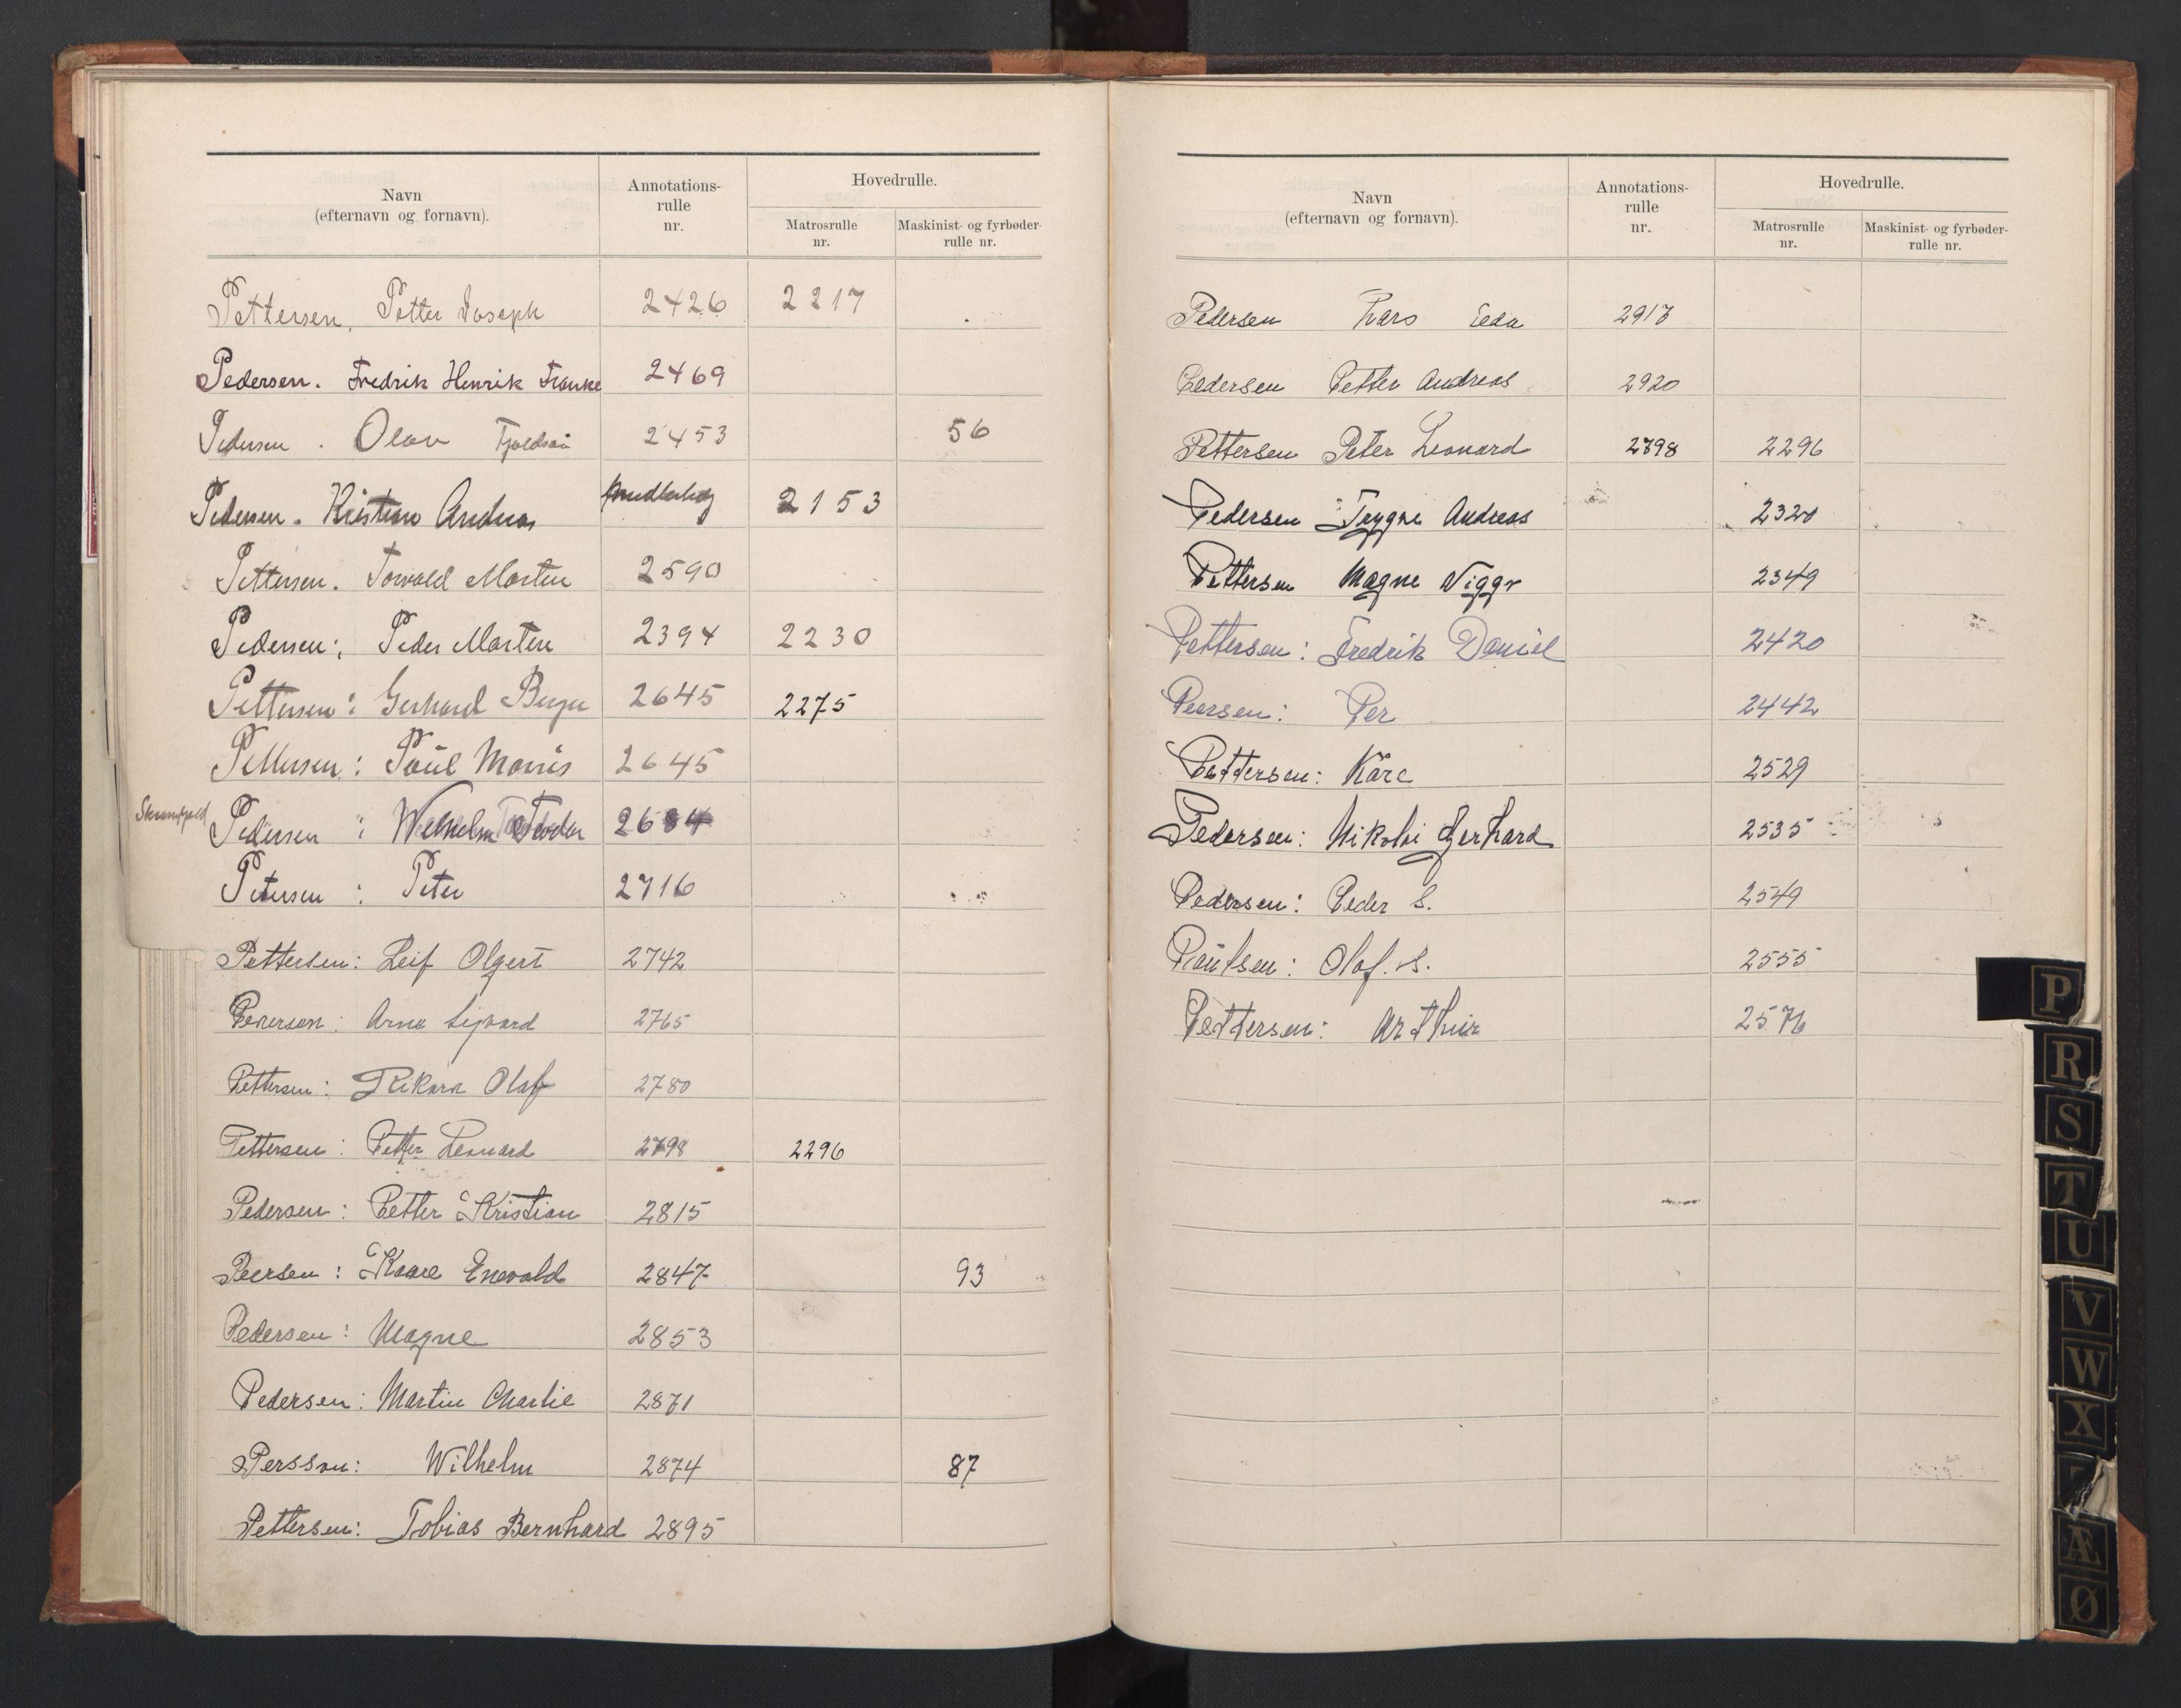 Navn
(efternavn og fornavn).
Annotations-
rulle
nr.
Hovedrulle.
Matrosrulle
nr.
Maskinist- og fyrbøder-
rulle nr.
Pettersen, Petter Joseph 2426 2217
Pedersen. Fredrik Henrik Franke 2469
Pedersen. Olav 2453 56
Pedersen. Kristian Andreas 2153
Pettersen. Torvald Martin 2590
Pedersen: Peder Marten 2394 2230
Pettersen: Gerhard Birger 2645 2275
Pettersen: Paul Monris 2645
Pedersen: Wilhelm Teodor 2684
Petersen: Peter 2716
Pettersen: Leif Olgert 2742
Petersen: Arne Sigvard 2765
Pettersen: Rikard Olaf 2780
Pettersen: Petter Leonard 2798 2296
Pedersen: Petter Kristian 2815
Peersen: Kaare Enevald 2847 93
Pedersen: Magne 2853
Pedersen: Martin Charlie 2871
Persson: Wilhelm 2874 87
Pettersen: Tobias Bernhard 2895
Navn
(efternavn og fornavn).
Annotations-
rulle
nr.
Hovedrulle.
Matrosrulle
nr.
Maskinist- og fyrbøder-
rulle nr.
Pedersen Lars Eeda 2917
Pedersen Petter Andreas 2920
Pettersen Peter Leonard 2798 2296
Pedersen Trygve Andreas 2320
Pettersen Magne Viggo 2349
Pettersen: Fredrik Daniel 2420
Peersen: Per 2442
Pettersen: Kåre 2529
Pedersen: Nikolai Gerhard 2535
Pedersen: Peder S. 2549
Paulsen: Olaf. S. 2555
Pettersen: Arthur 2576
P
R
S
T
U
V
W
X
Æ
Ø